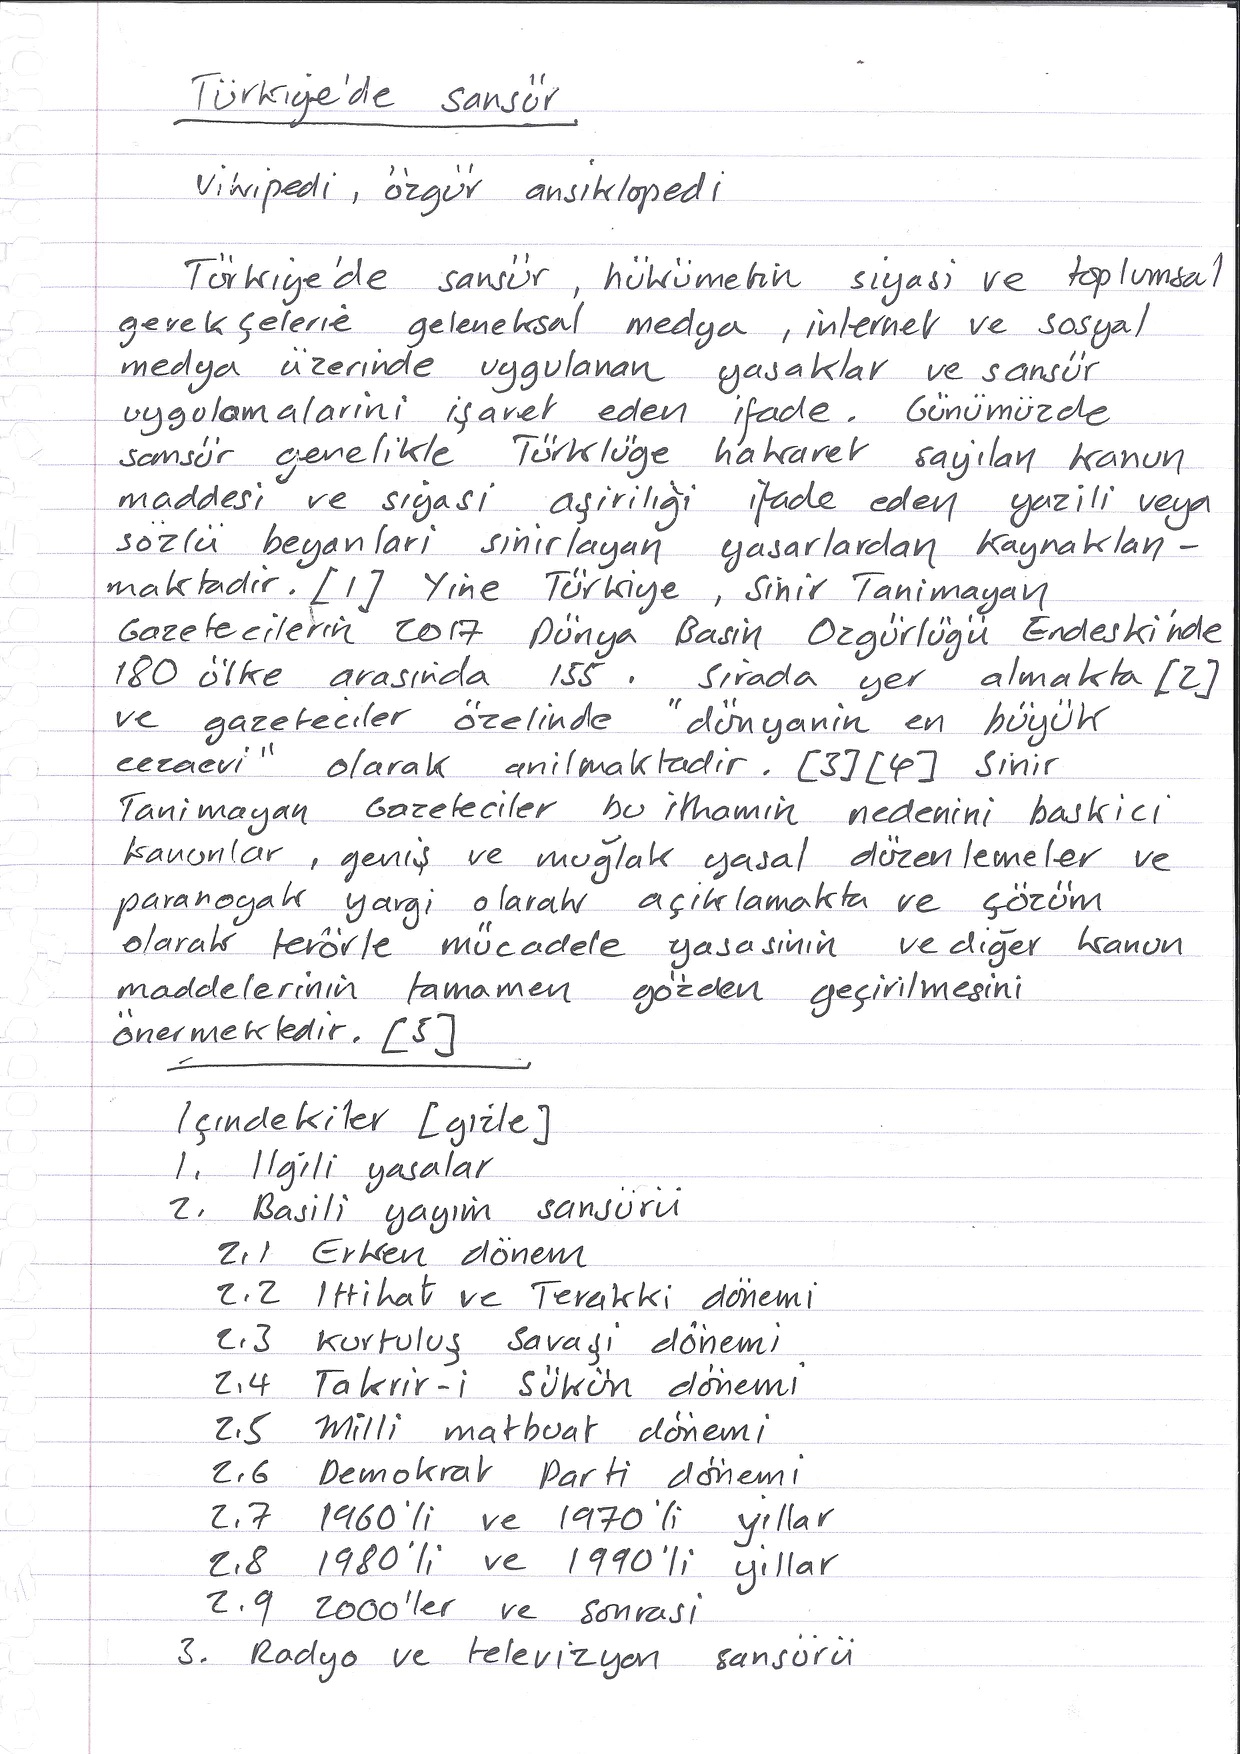 Türkiye'de sansür
Vikipedi, özgür ansiklopedi
Türkiye'de sansür, hükümetin siyasi ve toplumsal
gerekçelerle geleneksal medya, internet ve sosyal
medya üzerinde uygulanan yasaklar ve sansür
uygulamalarini işaret eden ifade. Günümüzde
sansür genelikle Türklüge hakaret sayilan kanun
maddesi ve siyasi aşiriliği ifade eden yazili veya
sözlü beyanlari sinirlayan yasarlardan kaynaklan-
maktadir. [1] Yine Türkiye, Sinir Tanimayan
Gazetecilerin 2017 Dünya Basin Ozgürlügü Endeski'nde
180 ülke arasinda 155. Sirada yer almakta [2]
ve gazeteciler özelinde "dünyanin en büyük
cezaevi" olarak anilmaktadir. [3][4] Sinir
Tanimayan Gazeteciler bu ithamin nedenini baskici
kanunlar, geniş ve muğlak yasal düzenlemeler ve
paranoyak yargi olarak açiklamakta ve çözüm
olarak terörle mücadele yasasinin ve diğer kanun
maddelerinin tamamen gözden geçirilmesini
önermektedir. [5]
Içindekiler [gizle]
1. Ilgili yasalar
2. Basili yayim sansürü
2.1 Erken dönem
2.2 Ittihat ve Terakki dönemi
2.3 Kurtuluş Savaşi dönemi
2.4 Takrir-i Sükün dönemi
2.5 Milli matbuat dönemi
2.6 Demokrat Parti dönemi
2.7 1960'li ve 1970'li yillar
2.8 1980'li ve 1990'li yillar
2.9 2000'ler ve sonrasi
3. Radyo ve televizyon sansürü